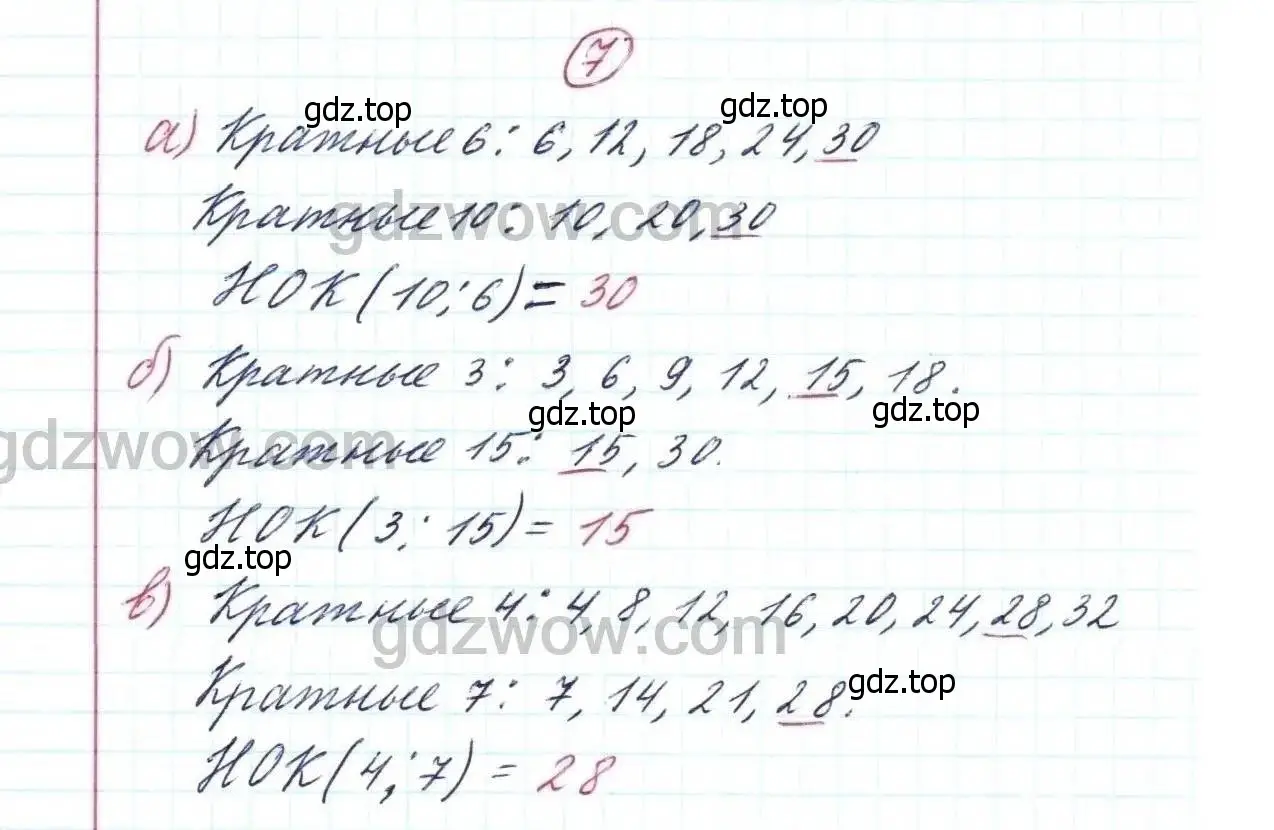 7
gdz.top gdz.top
а) Кратные 6: 6, 12, 18, 24, 30
gdzwow.com
Кратные 10: 10, 20, 30
НОК(10; 6) = 30
б) Кратные 3: 3, 6, 9, 12, 15, 18.
gdz.top gdz.top
gdzwow.com
Кратные 15: 15, 30.
НОК(3; 15) = 15
gdz.top
в) Кратные 4: 4, 8, 12, 16, 20, 24, 28, 32
gdzwow.com
Кратные 7: 7, 14, 21, 28.
gdz.top
НОК(4; 7) = 28